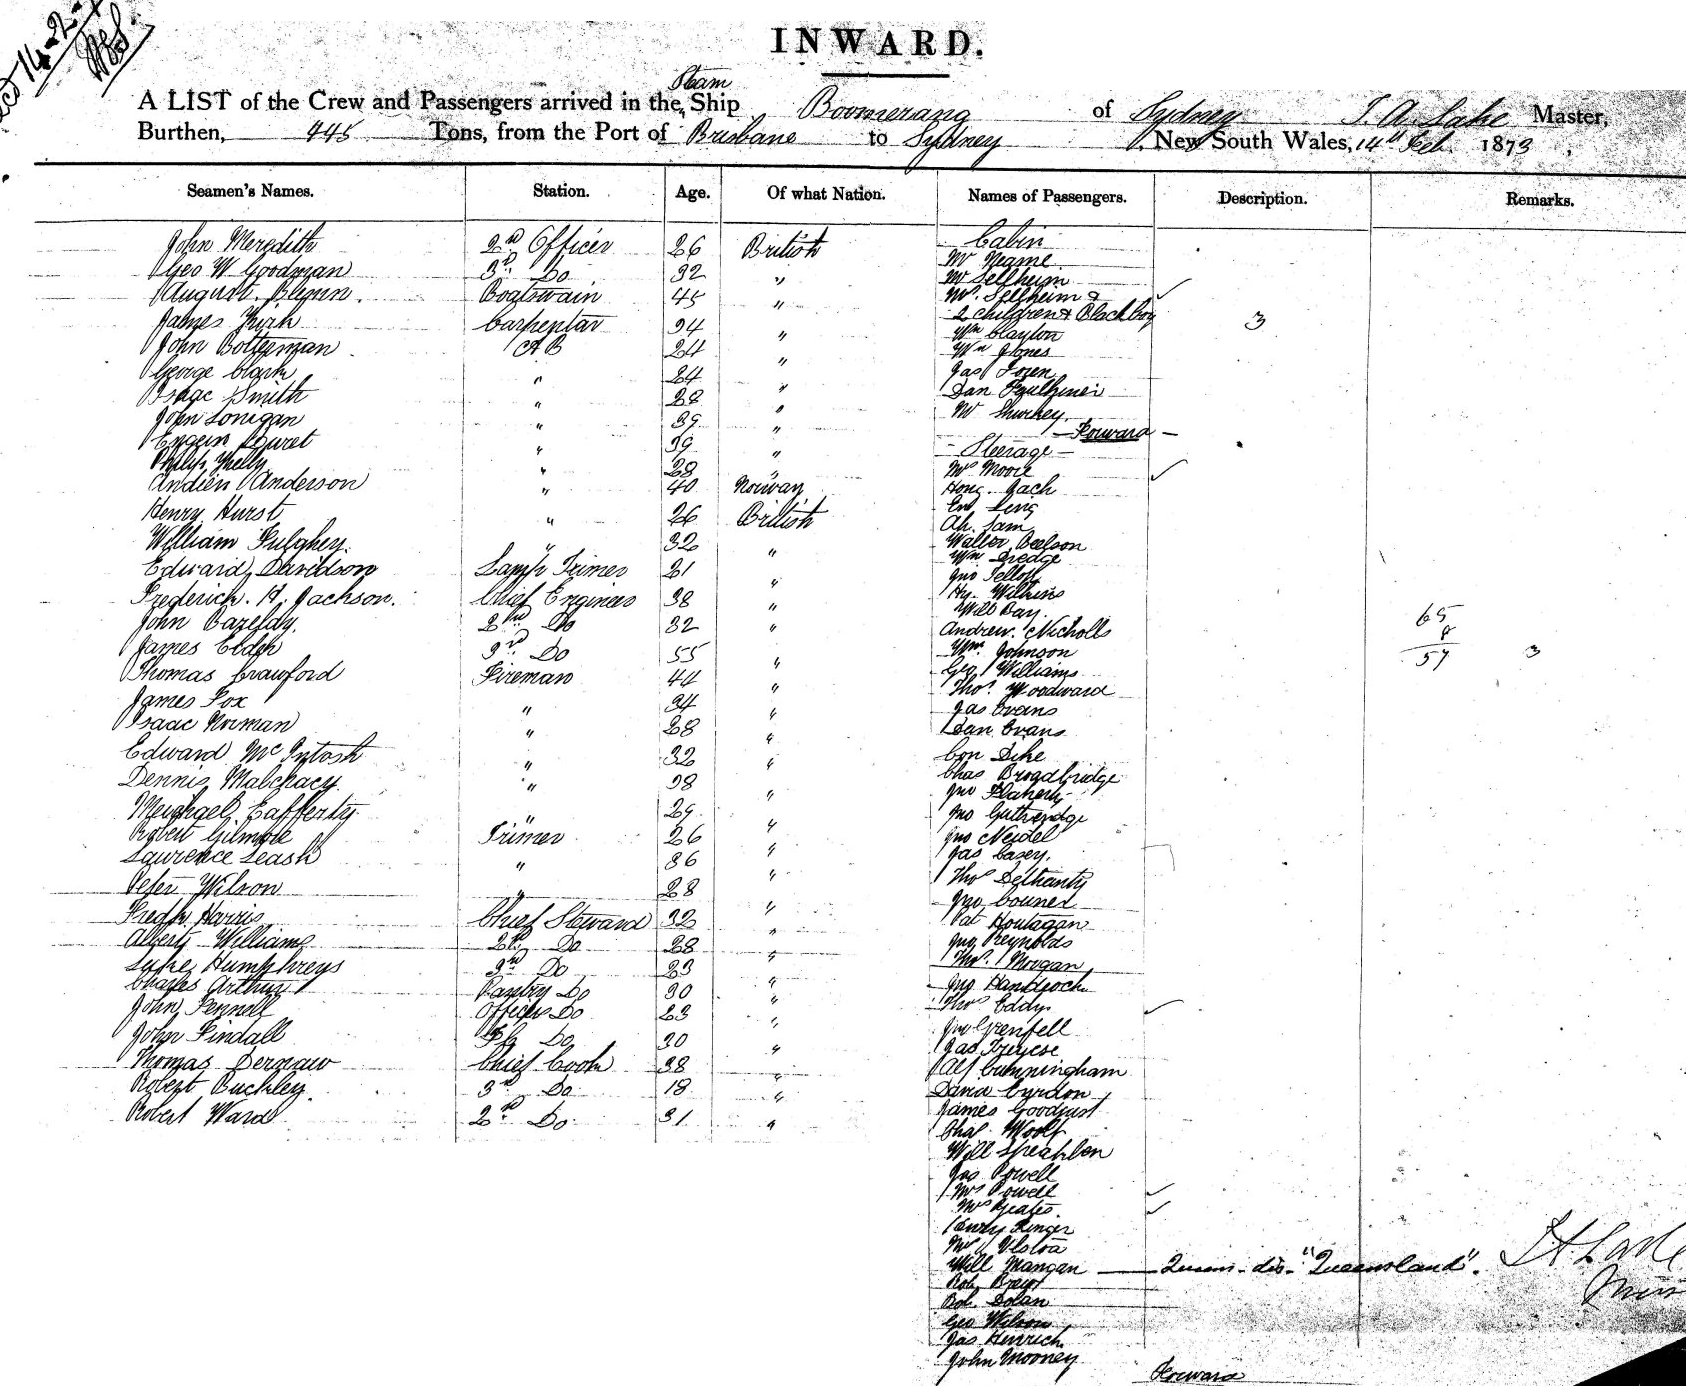 INWARD.
Steam
A LIST of the Crew and Passengers arrived in the Ship Boomerang of Sydney T. A. Lake Master,
Burthen, 445 Tons, from the Port of Brisbane to Sydney, New South Wales, 14th Feb 1873,
Seamen's Names. Station. Age. Of what Nation. Names of Passengers. Description. Remarks.
John Meredith 2nd Officer 26 British
Geo W Goodman 3rd Do 32 "
August Blynn. Boatswain 45 "
James Carpentar 34 "
John Bolterman AB 24 "
George Clark " 24 "
Isaac Smith " 28 "
John Lonigan " 39 "
" 39 "
Philip Kelly " 28 "
Andien Anderson " 40 Norway
Henry Hurst " 26 British
William Fulghey. " 32 "
Edward Davidson Lamp Trimer 21 "
Frederick. H. Jackson. Chief Engineer 38 "
John Bazelay. 2nd Do 32 "
James Elder 3rd Do 55 "
Thomas Crawford Fireman 44 "
James Fox " 34 "
Isaac Norman " 28 "
Edward McIntosh " 32 "
Dennis Malchacy " 38 "
Meichael Cafferty " 29 "
Robert Gilmore Trimer 26 "
Lawrence Leash " 36 "
Peter Wilson " 28 "
Fredk Harris Chief Steward 32 "
Albert Williams 2nd Do 28 "
Luke Humphreys 3rd Do 23 "
Charles Arthur Pantry Do 30 "
John Fennell Officers Do 23 "
John Findall Do 30 "
Thomas Dernaw Chief Cook 38 "
Robert Buckley. 3rd Do 18 "
Robert Ward 2nd Do 31 "
Cabin
Mr Neame
Mr Selheim
Mrs. Selheim &
2 children & Black boy 3
Wm Clayton
Wm Jones
Jas
Dan Faulkner
Mr Shurkey
Forward
Steerage
Mrs Moore
Hong Jach
Ling
Ah. Sam
Walter Beelson
Wm Dredge
Jno
Hy. Wilkins
Will Bay.
Andrew. Nicholls
Wm. Johnson
Geo Williams
Thos. Woodward
Jas Evans
Dan Evans
Con Dike
Chas Broadbridge
Jno Flaherty
Jno Gutheridge
Jno Neidel
Jas Casey.
Thos Delhanty
Jno Counel
Pat Houlagan
Jno Reynolds
Thos. Morgan
Jno Handcock
Thos Eddy.
Jno Grenfell
Jas
Alf Cunningham
David Cyrdon
James
Chas Woolf
Will
Jas Powell
Mrs Powell
Mrs Yeates.
Henry Ringer
Mr
Will Mangan Queens. dis. "Queensland".
Rob
Rob. Dolan
Geo Wilson
Jas Henrich
John Mooney
Forward
65
8
57 3